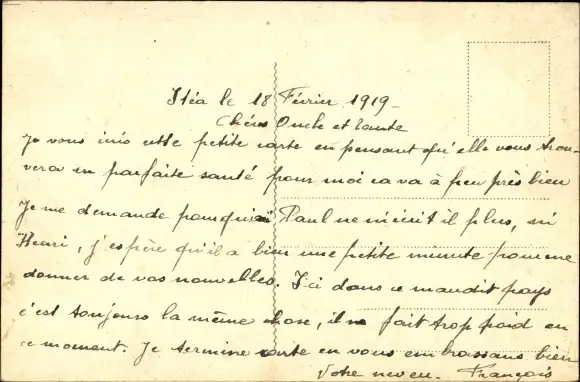 Itéa le 18 Février 1919-
Chérs Oncle et tante
Je vous écris cette petite carte en pensant qu'elle vous trou-
vera en parfaite santé pour moi ca va à peu près bien
Je me demande pourquoi Paul ne m'écrit il plus, ni
Henri, j'espère qu'il a bien une petite minute pour me
donner de vos nouvelles. Ici dans ce maudit pays
c'est toujours la même chose, il ne fait trop froid en
ce moment. Je termine en vous embrassans bien
Votre neveu. François